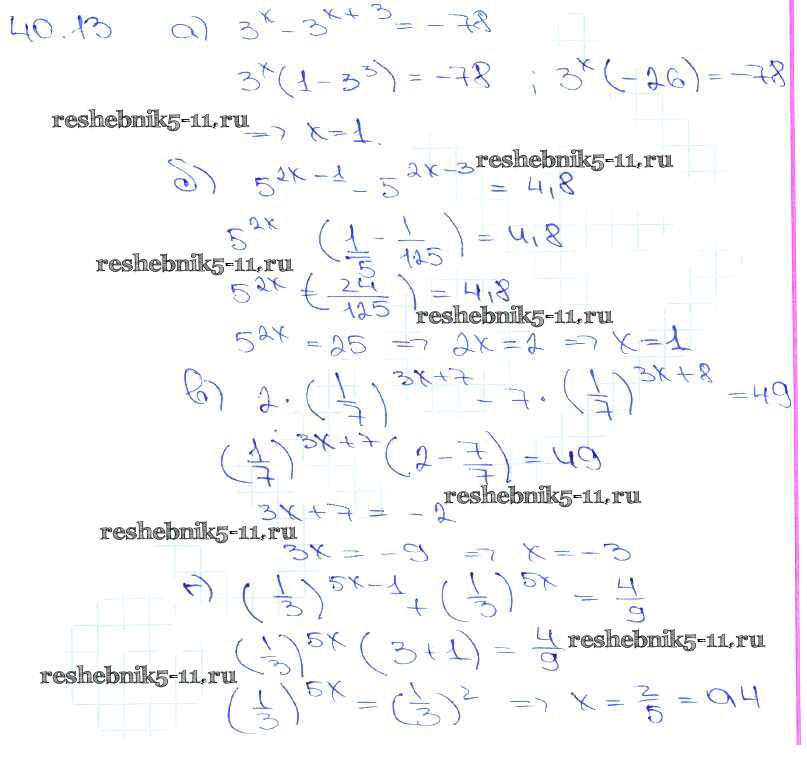 40.13 а) 3^x - 3^{x+3} = -78
3^x(1-3^3) = -78 ; 3^x(-26) = -78
reshebnik5-11.ru
=> x=1.
reshebnik5-11.ru
б) 5^{2x-1} - 5^{2x-3} = 4,8
5^{2x} (1/5 - 1/125) = 4,8
reshebnik5-11.ru
5^{2x} (24/125) = 4,8
reshebnik5-11.ru
5^{2x} = 25 => 2x=2 => x=1
в) 2·(1/7)^{3x+7} - 7·(1/7)^{3x+8} = 49
(1/7)^{3x+7} (2 - 7/7) = 49
reshebnik5-11.ru
3x+7 = -2
reshebnik5-11.ru
3x = -9 => x = -3
г) (1/3)^{5x-1} + (1/3)^{5x} = 4/9
(1/3)^{5x} (3+1) = 4/9
reshebnik5-11.ru
reshebnik5-11.ru
(1/3)^{5x} = (1/3)^2 => x = 2/5 = 0,4